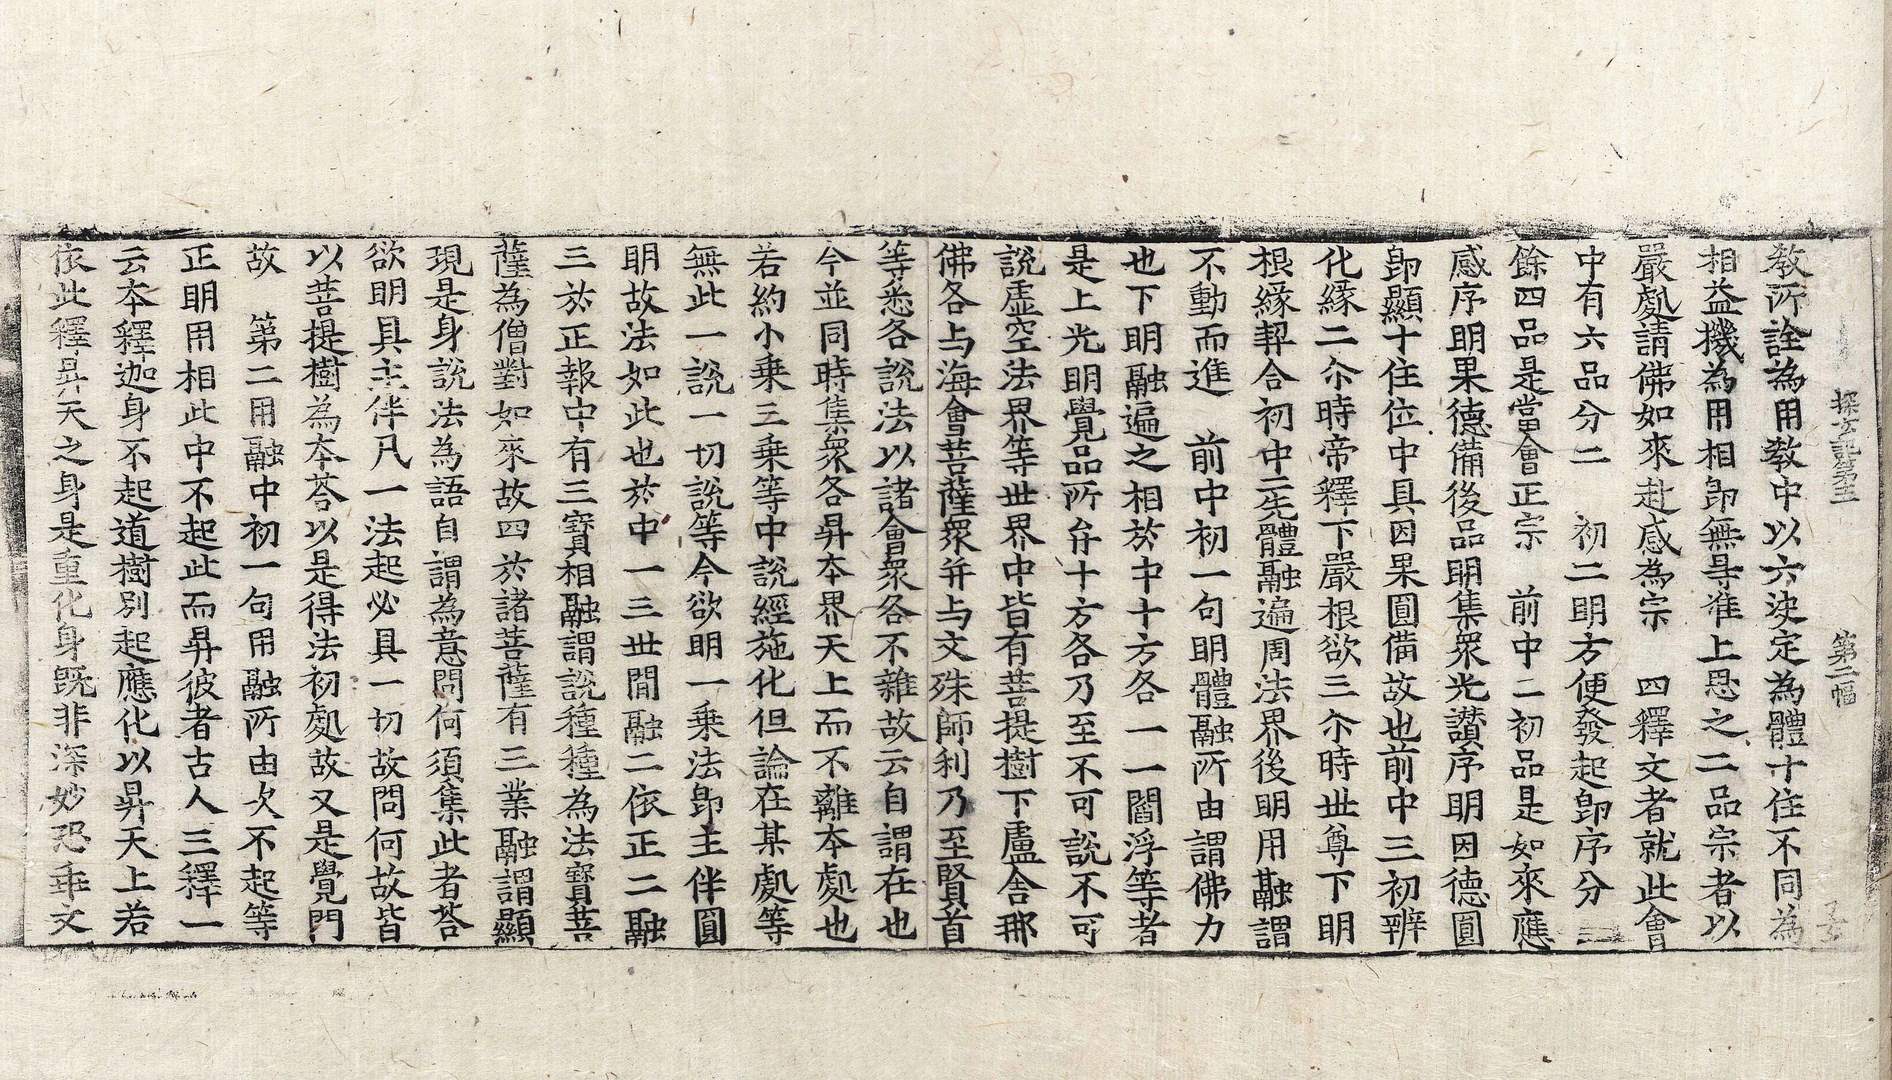 探玄記第五　第二幅
教所詮為用教中以六決定為體十住不同為
相益機為用相即無㝵准上思之二品宗者以
嚴處請佛如來赴感為宗　四釋文者就此會
中有六品分二　初二明方便發起即序分
餘四品是當會正宗　前中二初品是如來應
感序明果德備後品明集衆光讃序明因德圓
即顯十住位中具因果圓備故也前中三初辨
化緣二尒時帝釋下嚴根欲三尒時世尊下明
根緣契合初中二先體融遍周法界後明用融謂
不動而進　前中初一句明體融所由謂佛力
也下明融遍之相於中十方各一一閻浮等者
是上光明覺品所弁十方各乃至不可說不可
說虛空法界等世界中皆有菩提樹下盧舍那
佛各与海會菩薩衆并与文殊師利乃至賢首
等悉各說法以諸會衆各不雜故云自謂在也
今並同時集衆各昇本界天上而不離本處也
若約小乗三乗等中說經施化但論在某處等
無此一說一切說等今欲明一乗法即主伴圓
明故法如此也於中一三世間融二依正二融
三於正報中有三寶相融謂說種種為法寶菩
薩為僧對如來故四於諸菩薩有三業融謂顯
現是身說法為語自謂為意問何須集此者荅
欲明具主伴凡一法起必具一切故問何故皆
以菩提樹為本荅以是得法初處故又是覺門
故　第二用融中初一句用融所由次不起等
正明用相此中不起此而昇彼者古人三釋一
云本釋迦身不起道樹別起應化以昇天上若
依此釋昇天之身是重化身既非深妙恐乖文